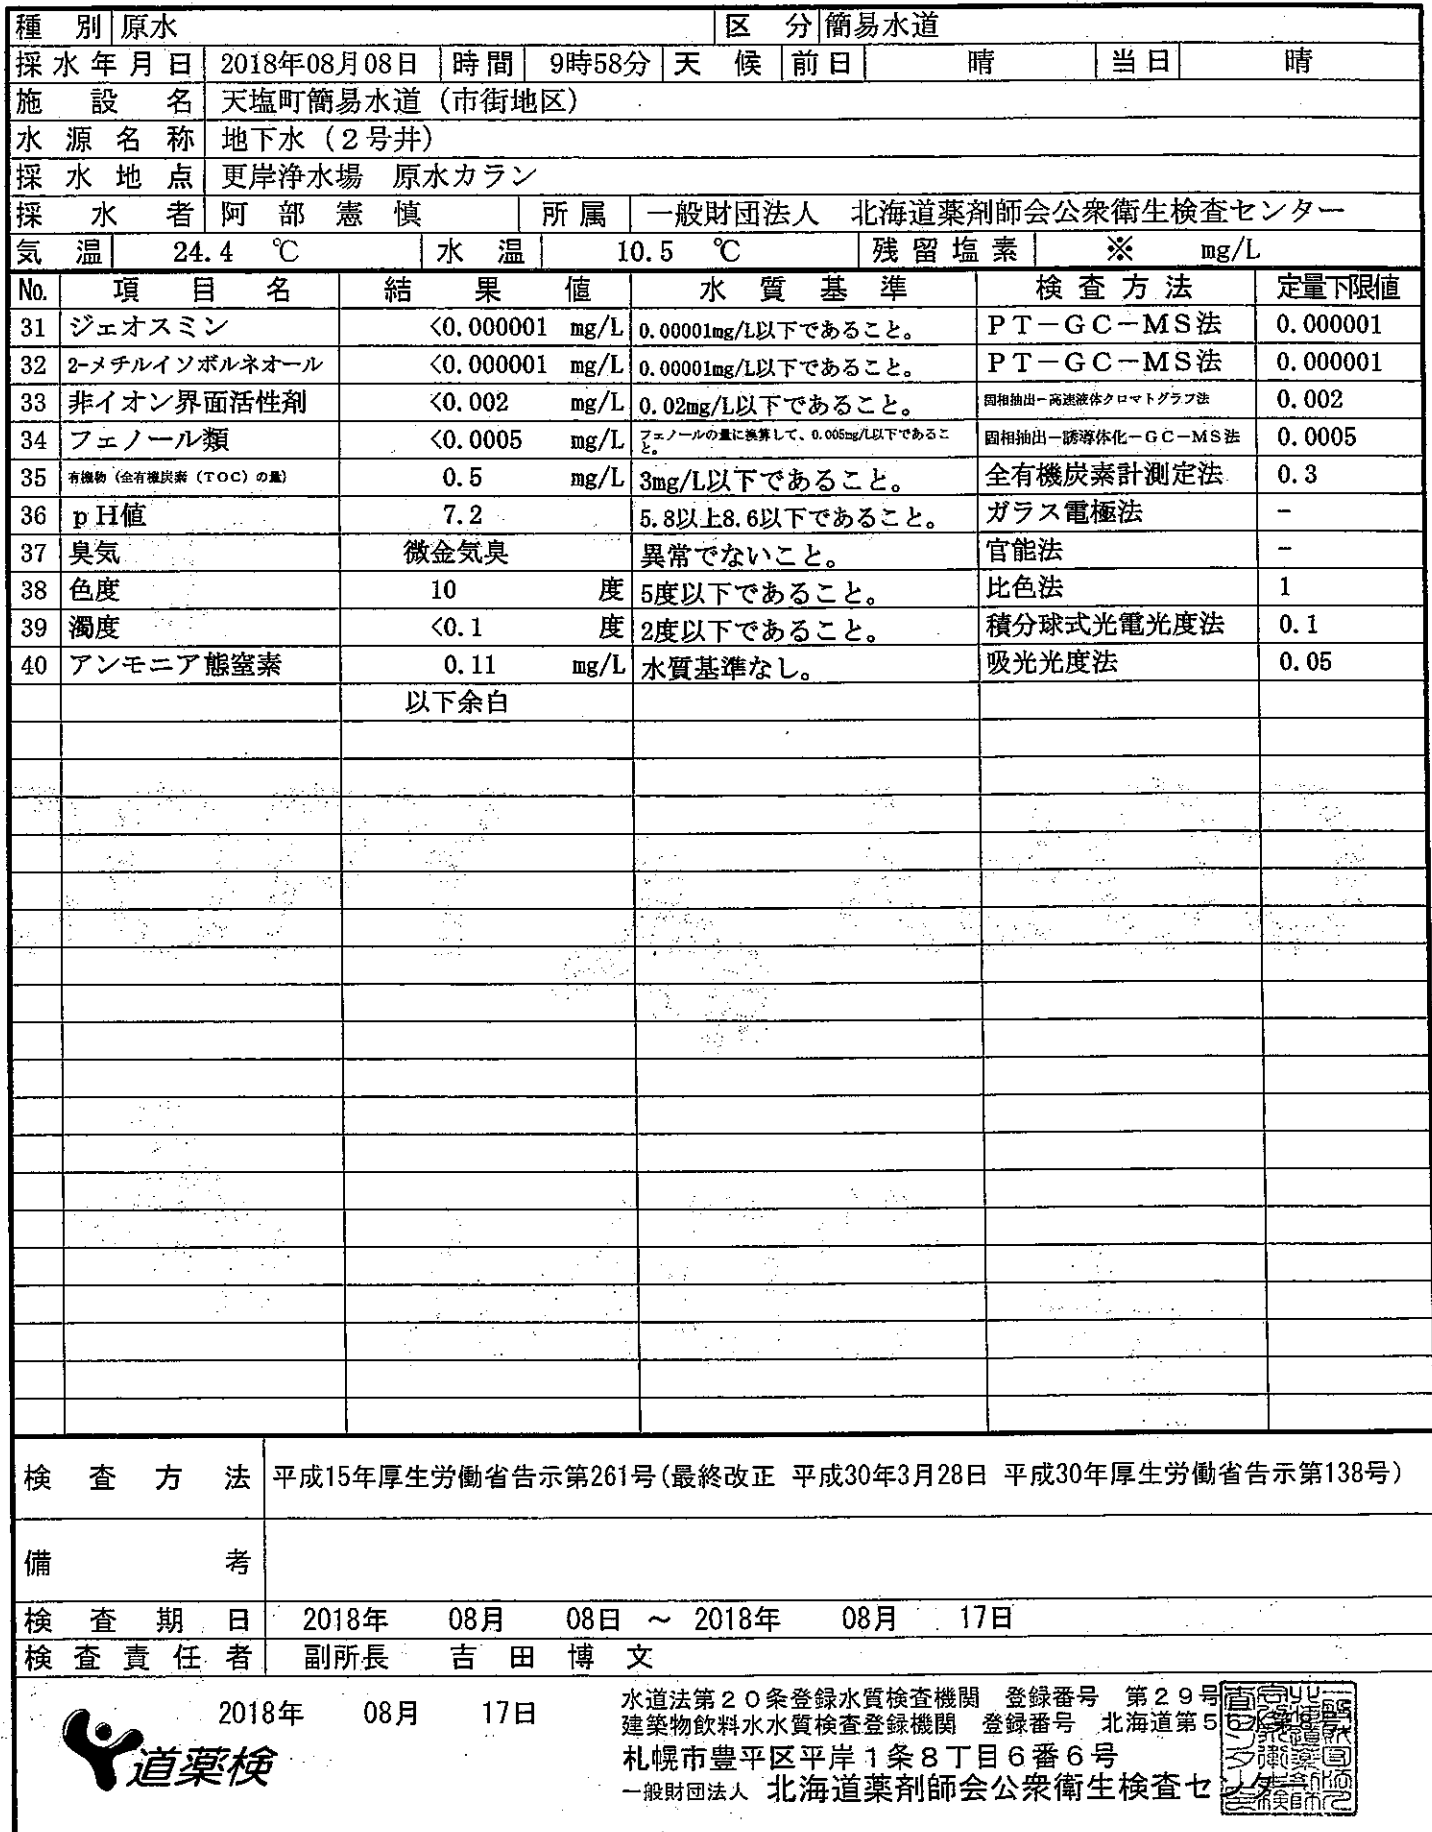 種別 原水 区分 簡易水道
採水年月日 2018年08月08日 時間 9時58分 天候 前日 晴 当日 晴
施設名 天塩町簡易水道（市街地区）
水源名称 地下水（２号井）
採水地点 更岸浄水場 原水カラン
採水者 阿部憲慎 所属 一般財団法人 北海道薬剤師会公衆衛生検査センター
気温 24.4 ℃ 水温 10.5 ℃ 残留塩素 ※ mg/L
No. 項目名 結果値 水質基準 検査方法 定量下限値
31 ジェオスミン <0.000001 mg/L 0.00001mg/L以下であること。 ＰＴ－ＧＣ－ＭＳ法 0.000001
32 2-メチルイソボルネオール <0.000001 mg/L 0.00001mg/L以下であること。 ＰＴ－ＧＣ－ＭＳ法 0.000001
33 非イオン界面活性剤 <0.002 mg/L 0.02mg/L以下であること。 固相抽出－高速液体クロマトグラフ法 0.002
34 フェノール類 <0.0005 mg/L フェノールの量に換算して、0.005mg/L以下であること。 固相抽出－誘導体化－ＧＣ－ＭＳ法 0.0005
35 有機物（全有機炭素（ＴＯＣ）の量） 0.5 mg/L 3mg/L以下であること。 全有機炭素計測定法 0.3
36 ｐＨ値 7.2 5.8以上8.6以下であること。 ガラス電極法 －
37 臭気 微金気臭 異常でないこと。 官能法 －
38 色度 10 度 5度以下であること。 比色法 1
39 濁度 <0.1 度 2度以下であること。 積分球式光電光度法 0.1
40 アンモニア態窒素 0.11 mg/L 水質基準なし。 吸光光度法 0.05
以下余白
検査方法 平成15年厚生労働省告示第261号（最終改正 平成30年3月28日 平成30年厚生労働省告示第138号）
備考
検査期日 2018年 08月 08日 ～ 2018年 08月 17日
検査責任者 副所長 吉田博文
2018年 08月 17日
道薬検
水道法第２０条登録水質検査機関 登録番号 第２９号
建築物飲料水水質検査登録機関 登録番号 北海道第５６
札幌市豊平区平岸１条８丁目６番６号
一般財団法人 北海道薬剤師会公衆衛生検査センター